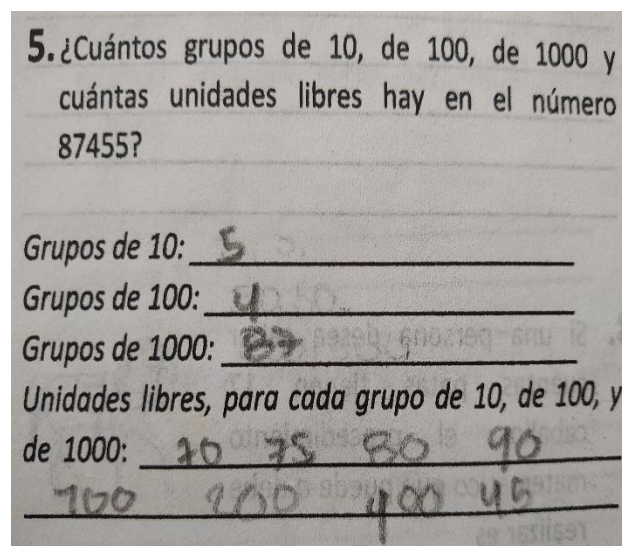 5. ¿Cuántos grupos de 10, de 100, de 1000 y
cuántas unidades libres hay en el número
87455?
Grupos de 10: 5
Grupos de 100: 4
Grupos de 1000: 87
Unidades libres, para cada grupo de 10, de 100, y
de 1000: 70 75 80 90
700 200 400 45